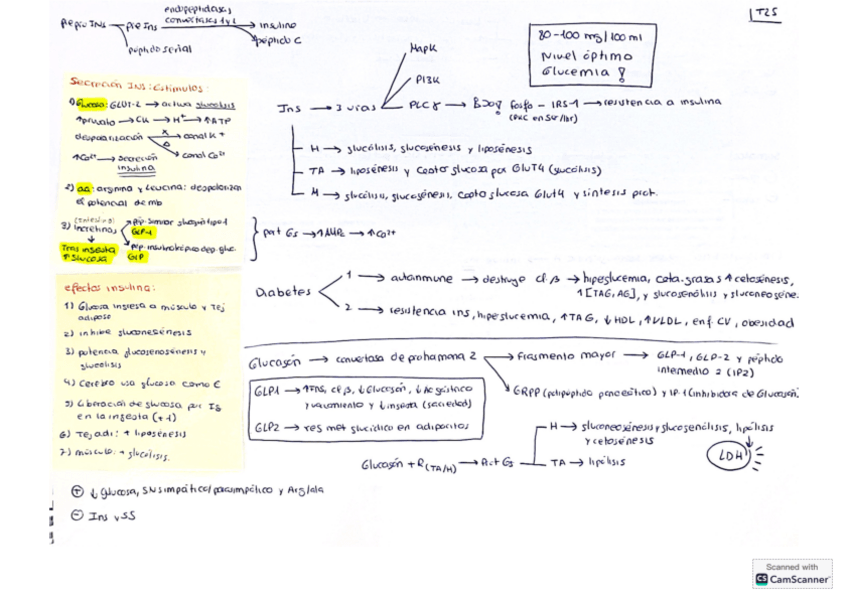 T25
PreproINS → pro Ins → insulina
endopeptidasas,
convertasas 1 y 2
péptido C
péptido señal
80-100 mg/100 ml
Nivel óptimo
Glucemia !
Secreción INS: Estímulos:
1) Glucosa: GLUT-2 → activa glucólisis
↑piruvato → CK → H+ → ↑ATP
despolarización
canal K+
canal Ca2+
↑Ca2+ → secreción
insulina
2) aa: arginina y leucina: despolarizan
el potencial de mb
3) Incretinas
(intestino)
GLP-1
Tras ingesta
↑ glucosa
GIP
prt Gs → ↑AMPc → ↑Ca2+
Ins → 3 vías
MapK
PI3K
PLCγ → fosfo - IRS-1 → resistencia a insulina
H → glucólisis, glucogénesis y lipogénesis
TA → lipogénesis y capto glucosa por GLUT4 (glucólisis)
M → glucólisis, glucogénesis, capto glucosa Glut4 y síntesis prot.
efectos insulina:
1) Glucosa ingresa a músculo y Tej
adiposo
2) inhibe gluconeogénesis
3) potencia glucogenogénesis y
glucólisis
4) Cerebro usa glucosa como E
5) Liberación de glucosa por
en la ingesta (+1)
6) Tej adi: + lipogénesis
7) músculo: + glucólisis.
Diabetes
1 → autoinmune → destruye cl. β → hiperglucemia, cata. grasas ↑ cetogénesis,
↑[TAG, AG], y glucogenólisis y gluconeogéne.
2 → resistencia ins, hiperglucemia, ↑TAG, ↓HDL, ↑VLDL, enf CV, obesidad
Glucagón → convertasa de prohormona 2
Fragmento mayor → GLP-1, GLP-2 y péptido
intermedio 2 (IP2)
GRPP (polipéptido pancreático) y IP-1 (inhibidora de Glucagón)
GLP1 → ↑INS, cl β, ↓Glucagón, ↓Ac gástrico
y vaciamiento y ↓ingesta (saciedad)
GLP2 → res met glucídico en adipocitos
Glucagón + R(TA/H) → Act Gs
H → gluconeogénesis y glucogenólisis, lipólisis
y cetogénesis
TA → lipólisis
LDH
⊕ ↓Glucosa, SN simpático/parasimpático y Arg/ala
⊖ Ins y SS
Scanned with
CS CamScanner